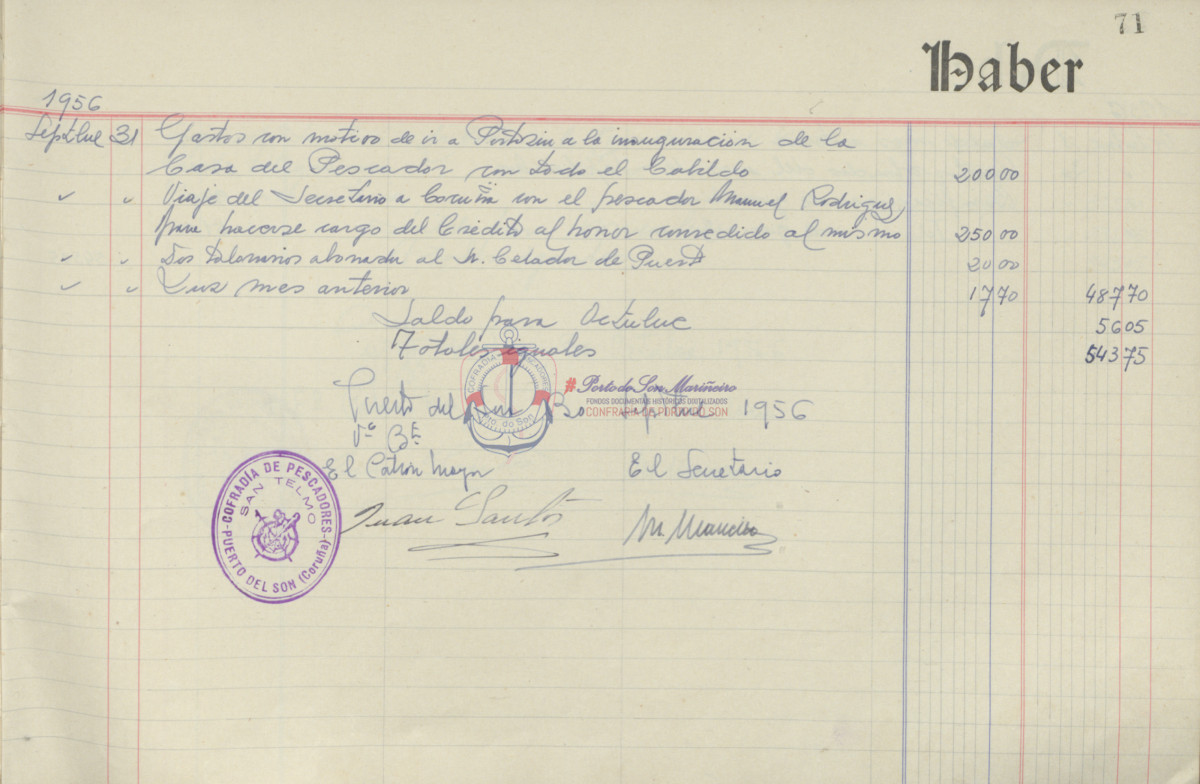 71
Haber
1956
Septbre 31 Gastos con motivo de ir a Portosin a la inauguración de la
Casa del Pescador con todo el Cabildo 200 00
" " Viaje del Secretario a Coruña con el pescador Manuel Rodriguez
para hacerse cargo del Crédito al honor consedido al mismo 250 00
" " Dos abonado al Sr. Celador de Puerto 20 00
" " Luz mes anterior 17 70 487 70
Saldo para Octubre 56 05
Totales iguales 543 75
COFRADIA PESCADORES
Pto. do Son
#Porto do Son Mariñeiro
FONDOS DOCUMENTAIS HISTÓRICOS DIXITALIZADOS
CONFRARÍA DE PORTO DO SON
Puerto del Son 30 Septbre 1956
Vº Bº
El Patrón Mayor El Secretario
Juan Santos
COFRADÍA DE PESCADORES
SAN TELMO
PUERTO DEL SON (Coruña)